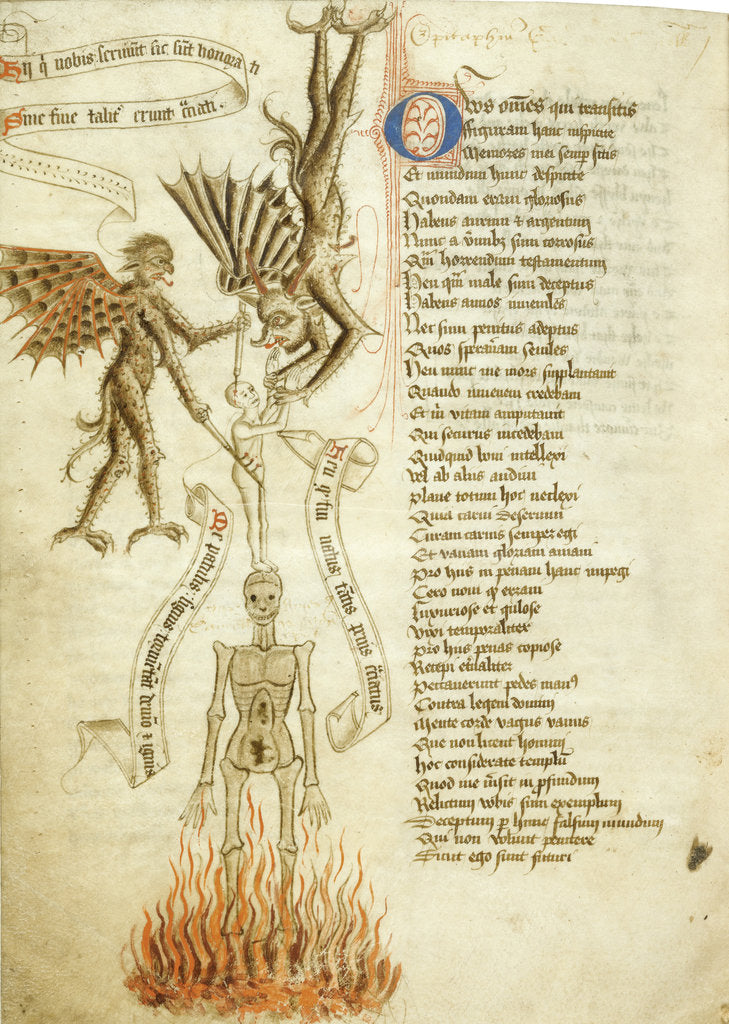 Hij qi vobis seruiunt sic sunt honorati
Sine fine talit erunt cruciati.
Epitaphium
O Uos omnes qui transitis
ffiguram hanc inspicite
Memores mei semper sitis
Et mundum hunc despicite
Quondam eram gloriosus
Habens aurum & argentum
Nunc a vermibus sum corrosus
Quam horrendum testamentum
Heu quam male sum deceptus
Habens annos iuueniles
Nec sum penitus adeptus
Quos sperauam seniles
Heu nunc me mors supplantauit
Quando iuuenem credebam
Et in vitam amputauit
Qui securus incedebam
Quidquid boni intellexi
Vel ab aliis audiui
plane totum hoc neclexi
Quia carni deseruiui
Curam carnis semper egi
Et vanam gloriam amaui
pro hiis in penam hanc impegi
Cero noui quod erraui
luxuriose et gulose
Vixi temporaliter
pro hiis penas copiose
Recepi eternaliter
Peccauerunt pedes manus
Contra legem domini
Mente corde vagus vanus
Que non licent homini
hoc considerate templum
Quod me misit in profundum
Relictum vobis sum exemplum
Deceptum per hunc falsum mundum
Qui non voluit penitere
Sicut ego sunt futuri
Heu quod sum natus tantis penis cruciatus
De peccatis lignis tormentum demon & ignis